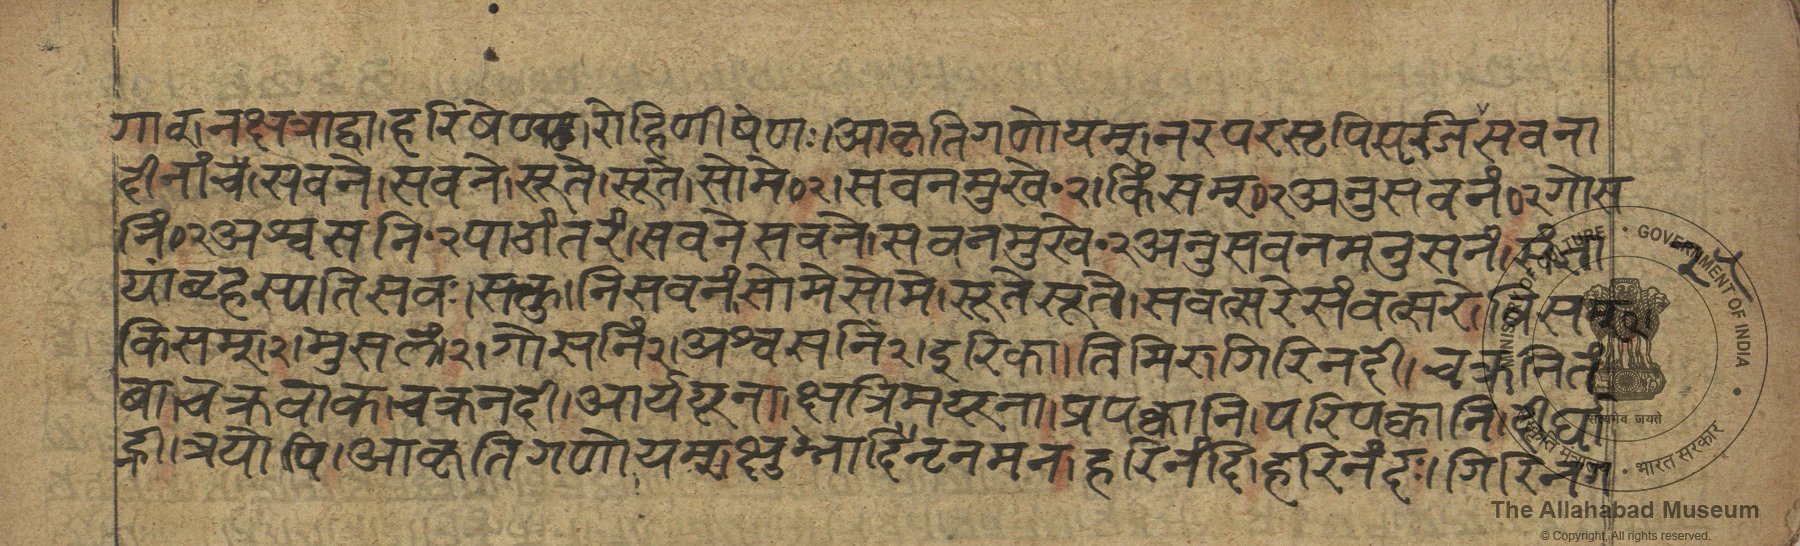 गात्। नक्षत्राद्वा। हरिषेण। रोहिणीषेणः। आकृतिगणोयम्। नरपरसृपिसृजि सवना
दीनां च। सवने। सवने। सूते। सूते। सोमे०२। सवनमुखे०२। किंसम्०२अनुसवनं०२गोस
निं०२अश्वसनि०२पाठांतरं। सवने सवने। सवनमुखे०२अनुसवनमनुसनं।
यां बृहस्पतिसवः। निसवनं सोमे सोमे। सूते सूते। सवत्सरे संवत्सरे।
किसम्।२। मुसलं।२। गोसनिं२। अश्वसनिं२। इरिका। तिमिर। गिरिनदी। चक्रनितं
बा। चक्रवाक। चक्रनदी। आर्ययूना। क्षत्रिमयूना। प्रपक्वानि। परिपक्वानि। दीर्घा
ह्नी। त्रयोपि। आकृतिगणोयम्। क्षुभ्नादि। नृनमन। हरिनंदि। हरिनंदः। गिरिनग
MINISTRY OF CULTURE • GOVERNMENT OF INDIA •
सत्यमेव जयते
संस्कृति मंत्रालय • भारत सरकार
The Allahabad Museum
© Copyright, All rights reserved.